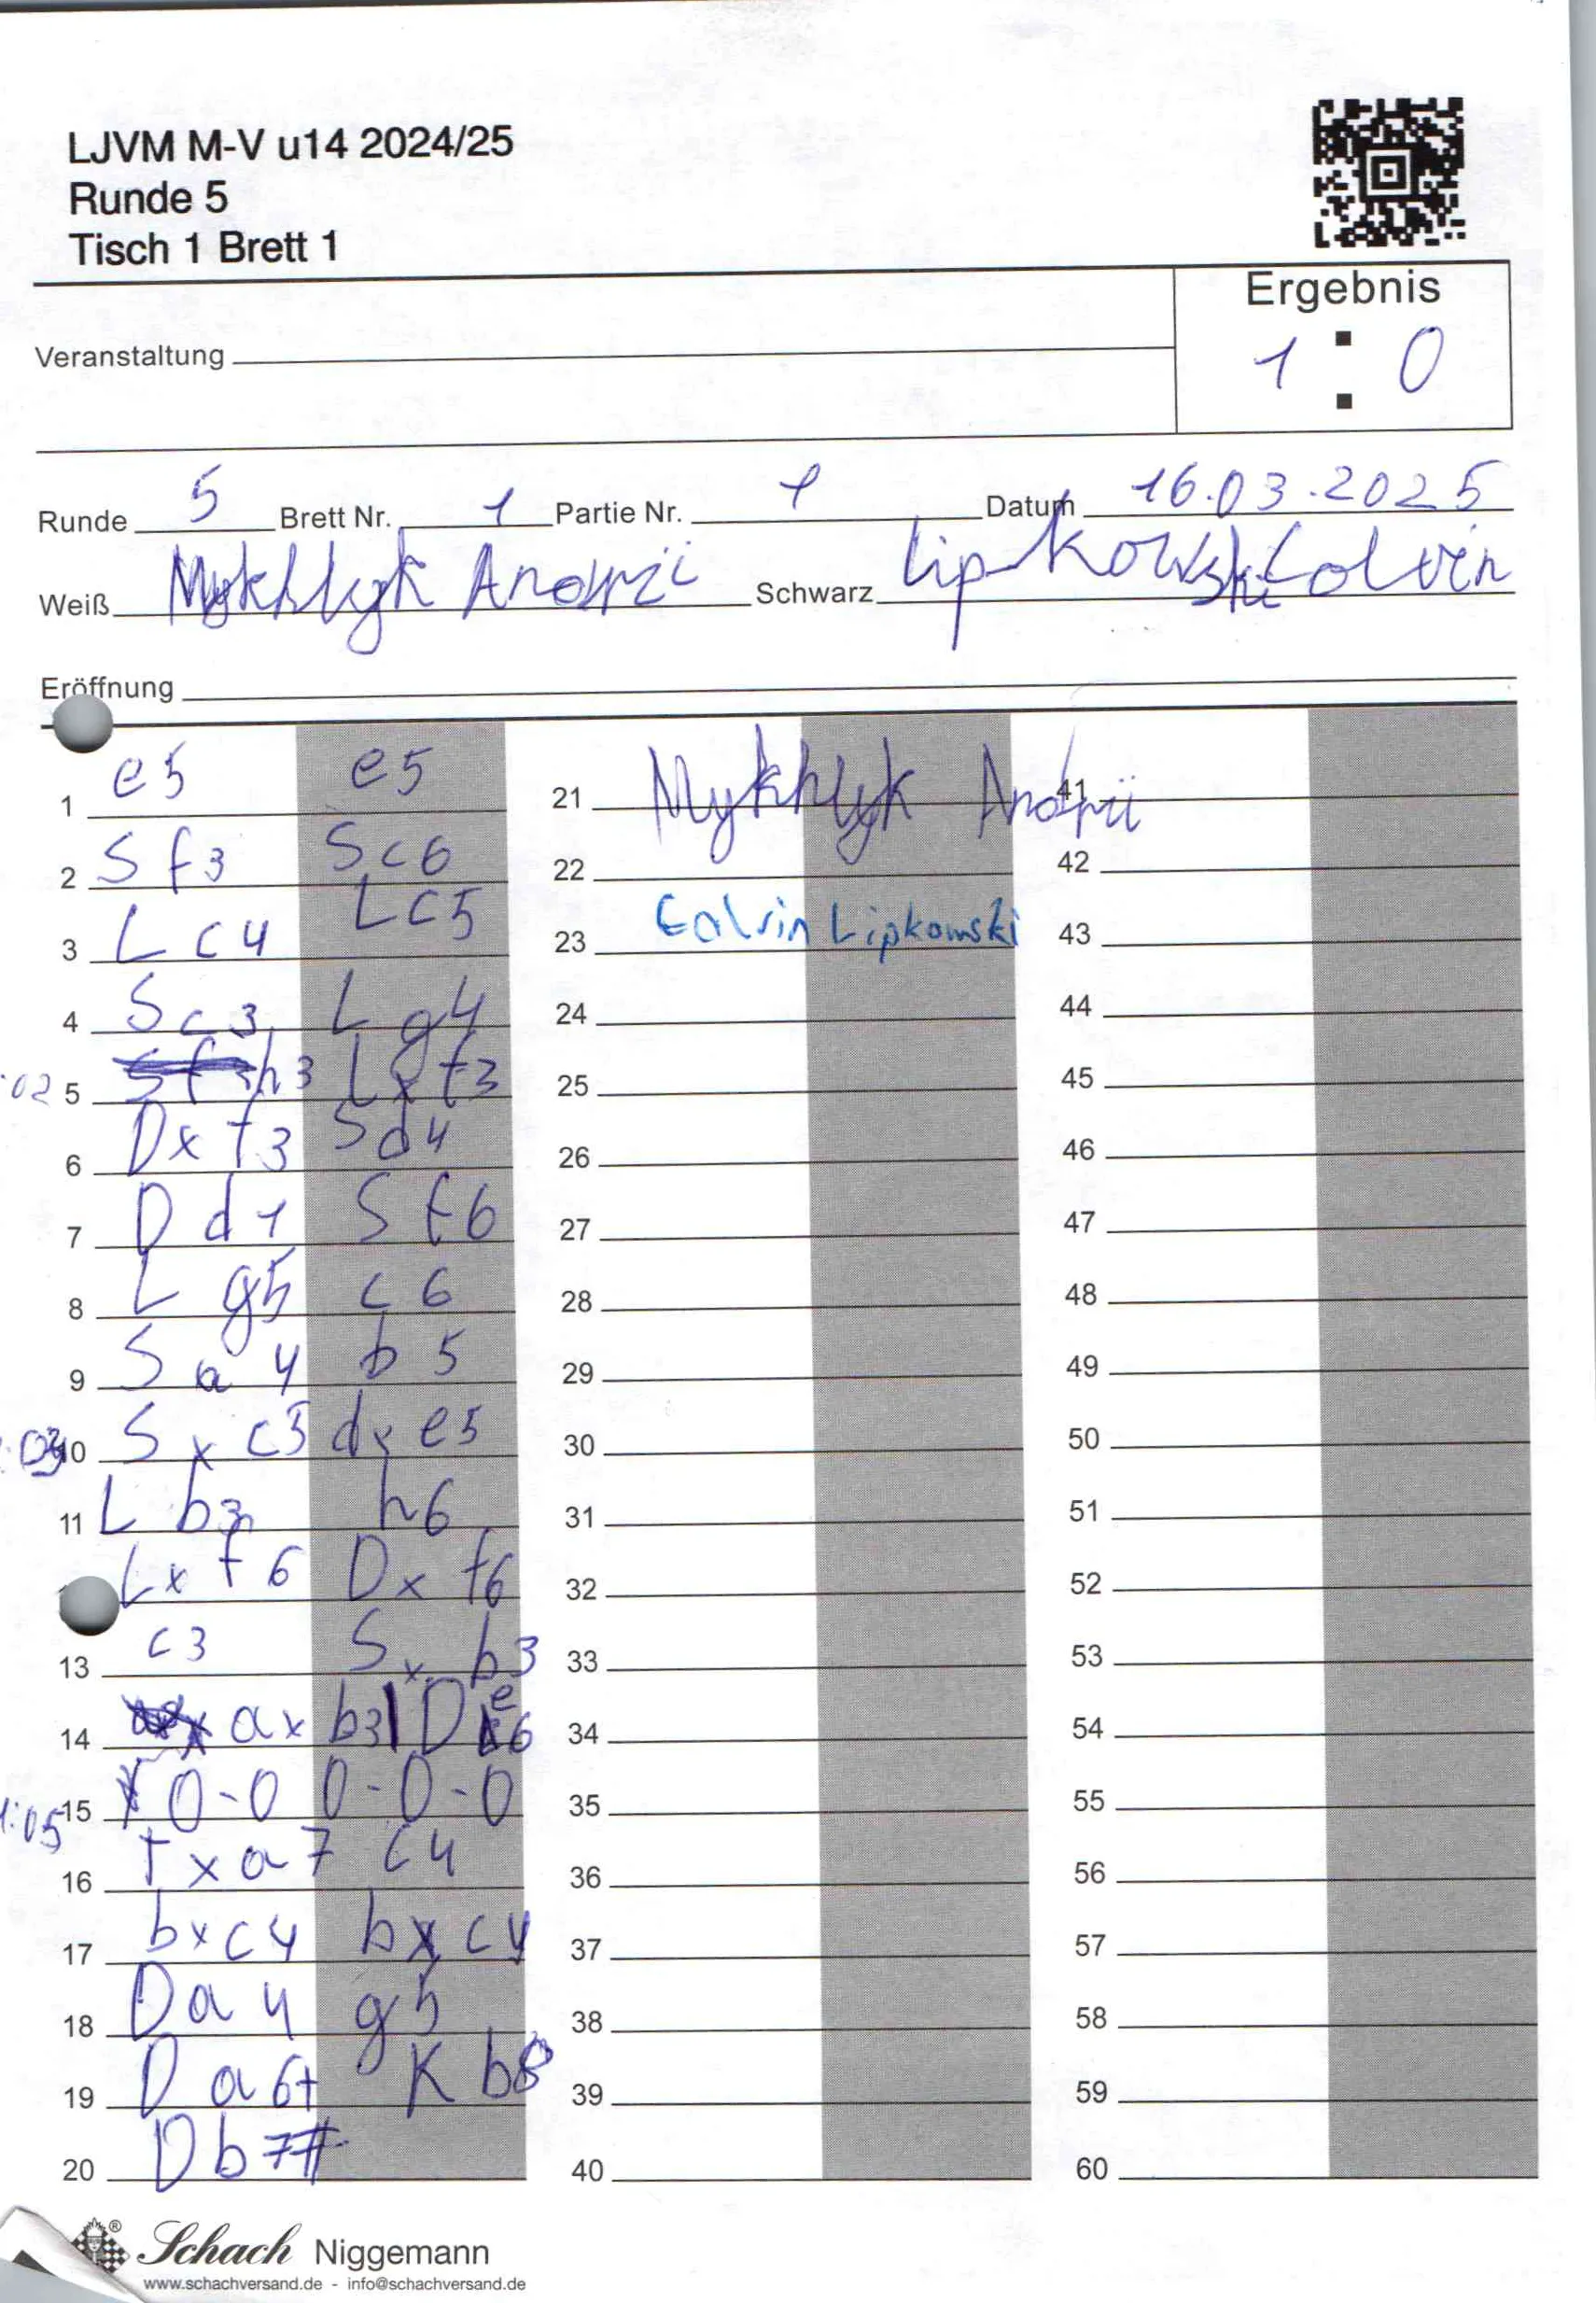 LJVM M-V u14 2024/25
Runde 5
Tisch 1 Brett 1
Ergebnis
1 : 0
Veranstaltung
Runde 5 Brett Nr. 1 Partie Nr. 1 Datum 16.03.2025
Weiß Mykhlyk Andrii Schwarz Lipkowski Colvin
Eröffnung
1 e5 e5
2 Sf3 Sc6
3 Lc4 Lc5
4 Sc3 Lg4
02 5 h3 Lxf3
6 Dxf3 Sd4
7 Dd1 Sf6
8 Lg5 c6
9 Sa4 b5
10 Sxc5 dxe5
11 Lb3 h6
Lxf6 Dxf6
13 c3 Sxb3
14 axb3 De6
1:05 15 0-0 0-0-0
16 Txa7 c4
17 bxc4 bxc4
18 Da4 g5
19 Da6+ Kb8
20 Db7#
21 Mykhlyk Andrii
22
23 Calvin Lipkowski
24
25
26
27
28
29
30
31
32
33
34
35
36
37
38
39
40
41
42
43
44
45
46
47
48
49
50
51
52
53
54
55
56
57
58
59
60
Schach Niggemann
www.schachversand.de - info@schachversand.de